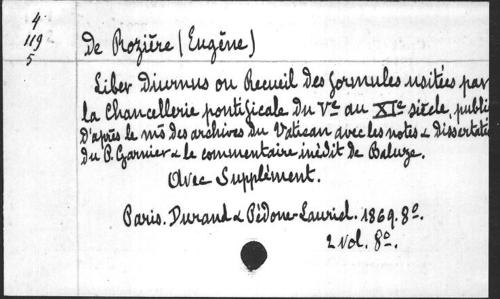 4
119
5
De Rozière (Eugène)
Liber Diurnus ou Recueil des formules usitées par
la Chancellerie pontificale du Ve au XIe siècle, publié
d'après le ms des archives du Vatican avec les notes & dissertati
du P. Garnier & le commentaire inédit de Baluze.
Avec Supplément.
Paris. Durand & Pédone-Lauriel. 1869. 8o.
2 vol. 8o.